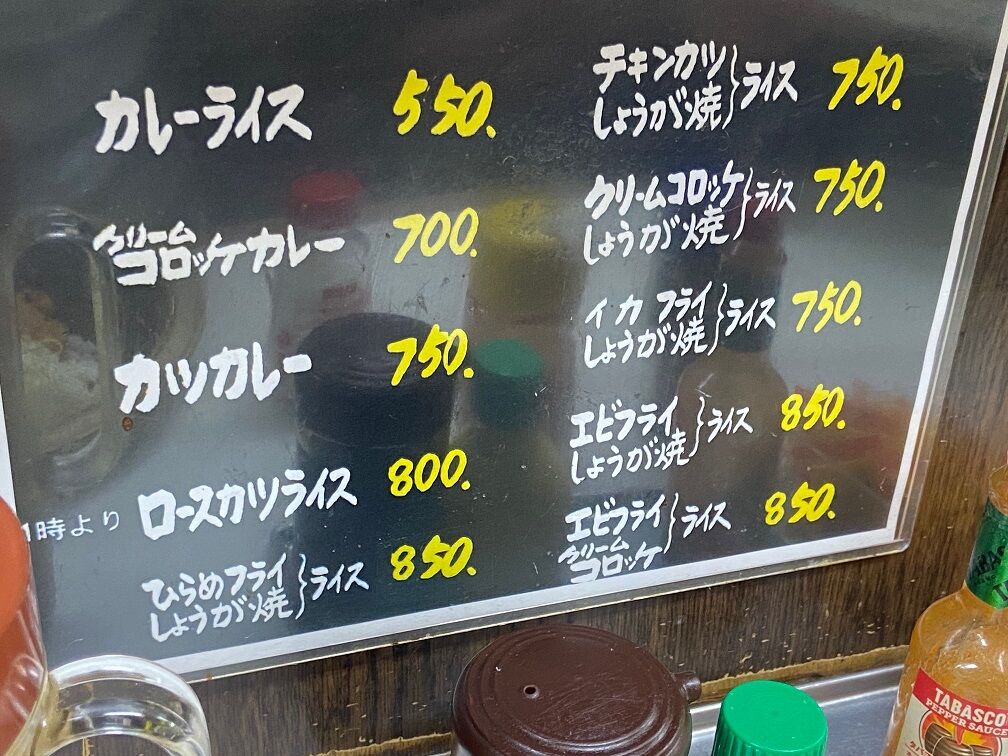 カレーライス 550.
クリーム
コロッケカレー 700.
カツカレー 750.
1時より ロースカツライス 800.
ひらめフライ
しょうが焼}ライス 850.
チキンカツ
しょうが焼}ライス 750.
クリームコロッケ
しょうが焼}ライス 750.
イカフライ
しょうが焼}ライス 750.
エビフライ
しょうが焼}ライス 850.
エビフライ
クリーム
コロッケ}ライス 850.
TABASCO
PEPPER SAUCE